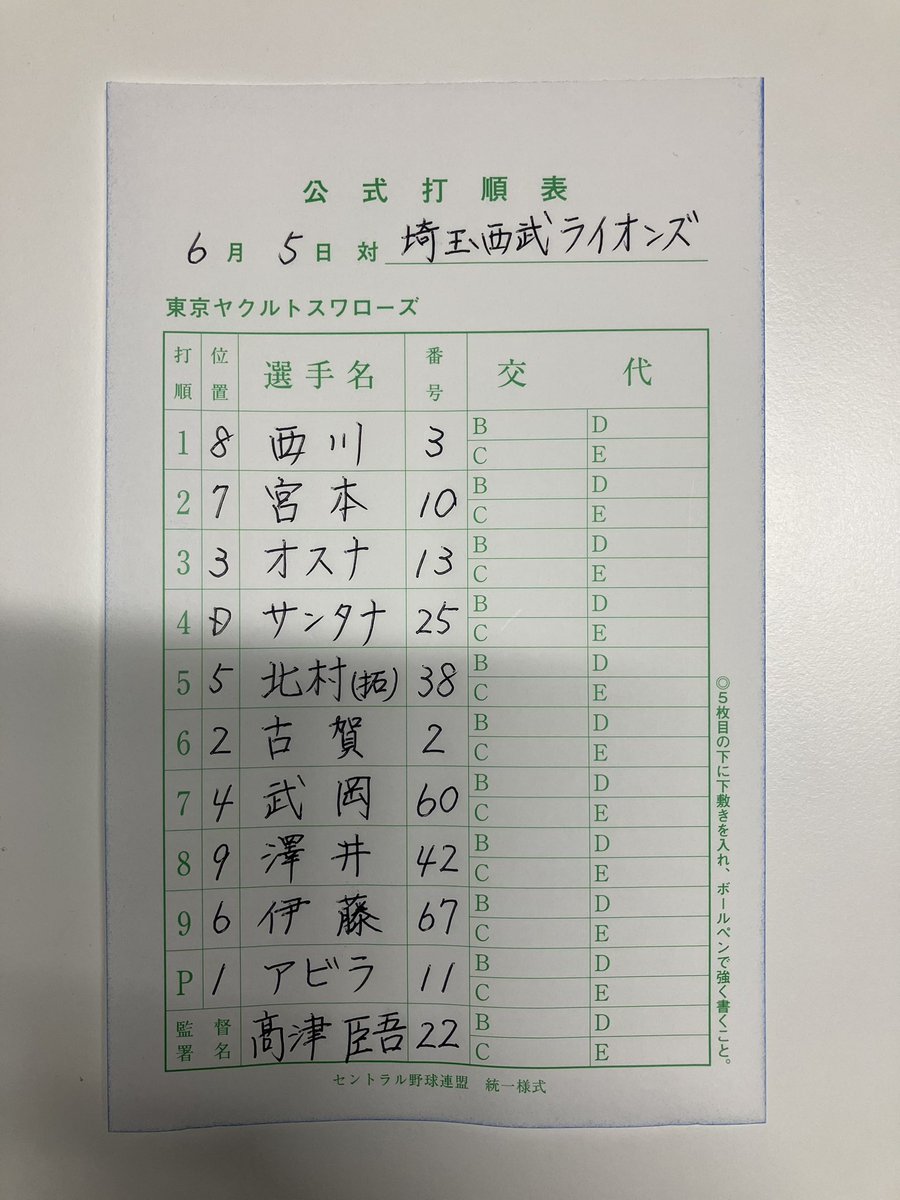 公式打順表
6月 5日 対 埼玉西武ライオンズ
東京ヤクルトスワローズ
打順 位置 選手名 番号 交代
1 8 西川 3 B D C E
2 7 宮本 10 B D C E
3 3 オスナ 13 B D C E
4 D サンタナ 25 B D C E
5 5 北村(拓) 38 B D C E
6 2 古賀 2 B D C E
7 4 武岡 60 B D C E
8 9 澤井 42 B D C E
9 6 伊藤 67 B D C E
P 1 アビラ 11 B D C E
監督署名 髙津 臣吾 22 B D C E
セントラル野球連盟 統一様式
◎5枚目の下に下敷きを入れ、ボールペンで強く書くこと。